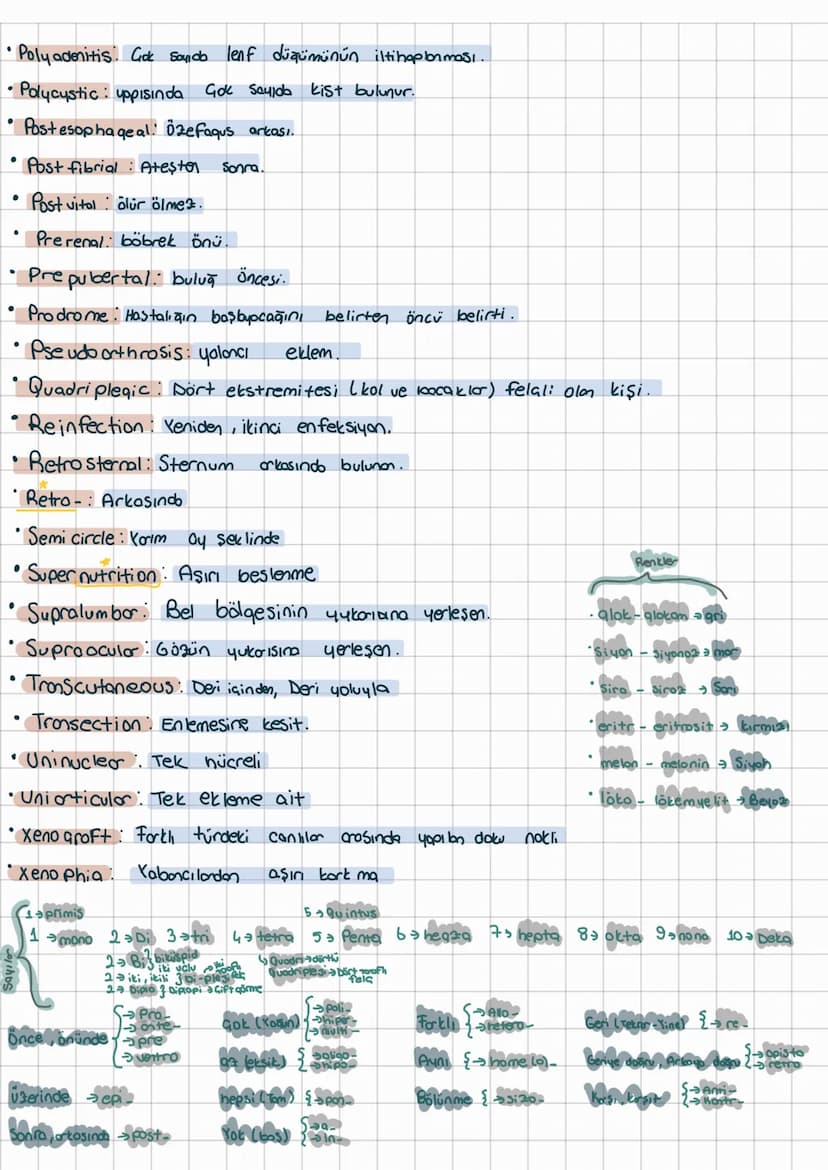 • Polyadenitis: Çok sayıda lenf düğümünün iltihaplanması.
• Polycustic: yapısında Çok sayıda kist bulunur.
• Postesophageal: Özefagus arkası.
• Post fibrial: Ateşten sonra.
• Post vital: ölür ölmez.
• Prerenal: böbrek önü.
• Prepubertal: buluğ öncesi.
• Prodrome: Hastalığın başlayacağını belirten öncü belirti.
• Pseudoorthrosis: yalancı eklem.
• Quadriplegic: Dört ekstremitesi (kol ve bacaklar) felçli olan kişi.
• Reinfection: Yeniden, ikinci enfeksiyon.
• Retrosternal: Sternum arkasında bulunan.
• Retro-: Arkasında
• Semi circle: Yarım ay şeklinde
• Supernutrition: Aşırı beslenme
• Supralumbar: Bel bölgesinin yukarısına yerleşen.
• Supraocular: Gözün yukarısına yerleşen.
• Transcutaneous: Deri içinden, Deri yoluyla
• Transection: Enlemesine kesit.
• Uninuclear: Tek hücreli
• Uniarticular: Tek ekleme ait
• Xenograft: Farklı türdeki canlılar arasında yapılan doku nakli
• Xenophia: Yabancılardan aşırı korkma
Renkler
• glok - glokom → gri
• Siyan - Siyanoz → mor
• Sira - Siroz → Sarı
• eritr - eritrosit → kırmızı
• melan - melanin → Siyah
• löko - lökemyelit → Beyaz
Sayılar
1 → primis 5 → Quintus
1 → mono 2 → Di 3 → tri 4 → tetra 5 → Penta 6 → hegza 7 → hepta 8 → okta 9 → nona 10 → Deka
2 → Bi } biküspid iki uçlu Quadri → dörtlü
2 → iki, ikili } Di-plesi Quadriplesi → Dört taraflı felç
2 → Diplo } Diplopi → Çift görme
Önce, önünde { → Pro- → ante- → pre → ventro
Çok (Yoğun) { → poli- → hiper- → multi-
Farklı { → Allo- → hetero-
Geri (Tekrar-Yine) { → re-
Az (eksik) { → oligo- → hipo-
Aynı { → home(o)-
Geriye doğru, Arkaya doğru { → opisto → retro
Üzerinde → epi-
hepsi (Tam) { → pan-
Bölünme { → şizo-
Karşı, karşıt { → Anti- → kontr-
Sonra, arkasında → post-
Yok (boş) { → a- → in-